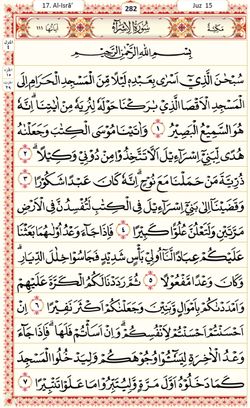 17. Al-Isrā'
282
Juz 15
مَكِّيَّةٌ
سُوْرَةُ الْاِسْرَآءِ
اٰيَاتُهَا ١١١
بِسْمِ اللّٰهِ الرَّحْمٰنِ الرَّحِيْمِ
سُبْحٰنَ الَّذِيْٓ اَسْرٰى بِعَبْدِهٖ لَيْلًا مِّنَ الْمَسْجِدِ الْحَرَامِ اِلَى
الْمَسْجِدِ الْاَقْصَا الَّذِيْ بٰرَكْنَا حَوْلَهٗ لِنُرِيَهٗ مِنْ اٰيٰتِنَاۗ اِنَّهٗ
هُوَ السَّمِيْعُ الْبَصِيْرُ ١ وَاٰتَيْنَا مُوْسَى الْكِتٰبَ وَجَعَلْنٰهُ
هُدًى لِّبَنِيْٓ اِسْرَآءِيْلَ اَلَّا تَتَّخِذُوْا مِنْ دُوْنِيْ وَكِيْلًاۗ ٢
ذُرِّيَّةَ مَنْ حَمَلْنَا مَعَ نُوْحٍۗ اِنَّهٗ كَانَ عَبْدًا شَكُوْرًا ٣
وَقَضَيْنَآ اِلٰى بَنِيْٓ اِسْرَآءِيْلَ فِى الْكِتٰبِ لَتُفْسِدُنَّ فِى الْاَرْضِ
مَرَّتَيْنِ وَلَتَعْلُنَّ عُلُوًّا كَبِيْرًا ٤ فَاِذَا جَآءَ وَعْدُ اُوْلٰىهُمَا بَعَثْنَا
عَلَيْكُمْ عِبَادًا لَّنَآ اُولِيْ بَأْسٍ شَدِيْدٍ فَجَاسُوْا خِلٰلَ الدِّيَارِۗ
وَكَانَ وَعْدًا مَّفْعُوْلًا ٥ ثُمَّ رَدَدْنَا لَكُمُ الْكَرَّةَ عَلَيْهِمْ
وَاَمْدَدْنٰكُمْ بِاَمْوَالٍ وَّبَنِيْنَ وَجَعَلْنٰكُمْ اَكْثَرَ نَفِيْرًا ٦ اِنْ
اَحْسَنْتُمْ اَحْسَنْتُمْ لِاَنْفُسِكُمْۗ وَاِنْ اَسَأْتُمْ فَلَهَاۗ فَاِذَا جَآءَ
وَعْدُ الْاٰخِرَةِ لِيَسُوْٓءٗا وُجُوْهَكُمْ وَلِيَدْخُلُوا الْمَسْجِدَ
كَمَا دَخَلُوْهُ اَوَّلَ مَرَّةٍ وَّلِيُتَبِّرُوْا مَا عَلَوْا تَتْبِيْرًا ٧